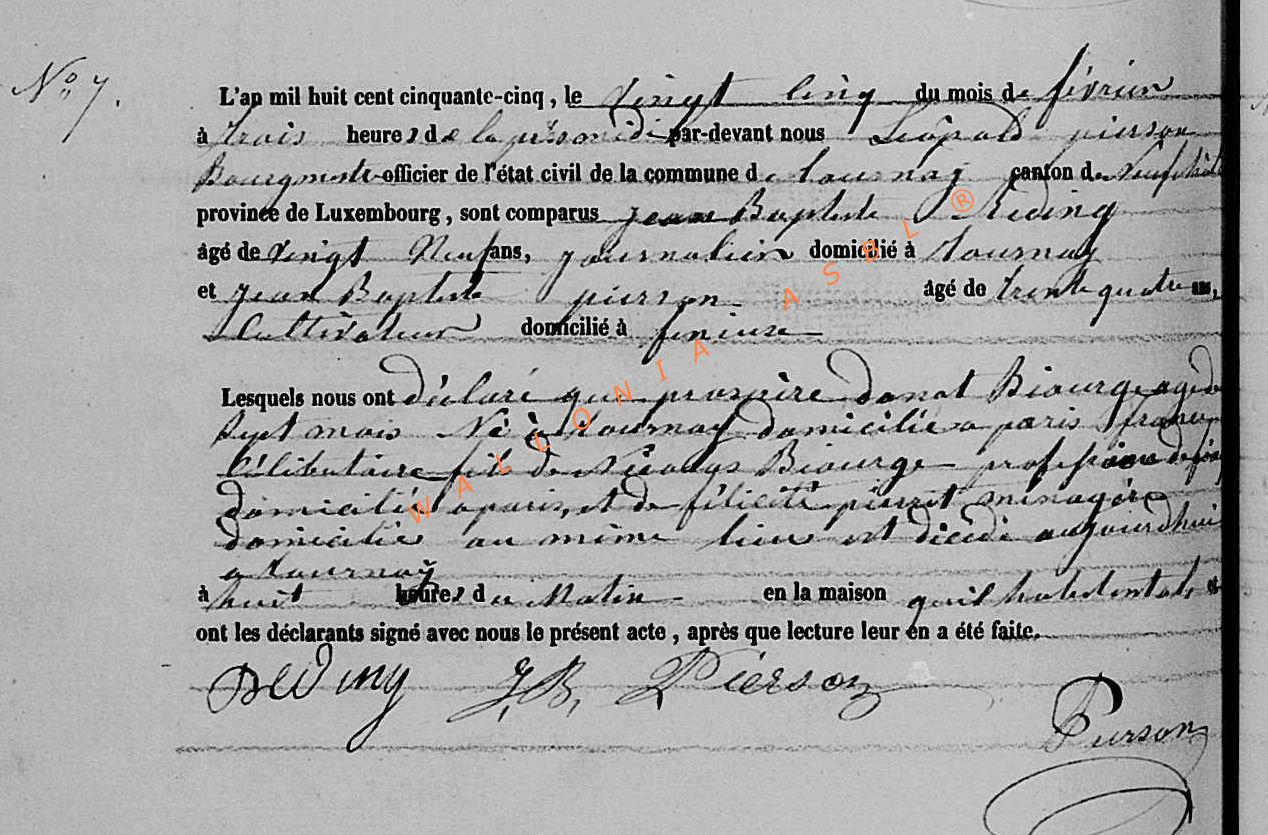 N° 7.
L'an mil huit cent cinquante-cinq, le vingt cinq du mois de février
à trois heures de la près midi par-devant nous Léopold pierson
Bourgmestre officier de l'état civil de la commune de tournay canton de Neufchât
province de Luxembourg, sont comparus jean Baptiste Reding
âgé de vingt Neuf ans, journalier domicilié à tournay
et jean Baptiste pierson âgé de trente quatre ans,
Cultivateur domicilié à
Lesquels nous ont déclaré que prospère donat Biourge agé de
Sept mois Né à tournay domicilié a paris france
Célibataire fils de Nicolas Biourge profession de
domicilié a paris, et de félicité pierret menagère
domicilié au même lieu est décédé aujourdhui
a tournay
à huit heures du Matin en la maison qu'il habitent et
ont les déclarants signé avec nous le présent acte, après que lecture leur en a été faite.
Reding J, B, Pierson
Pierson
WALLONIA ASBL ®